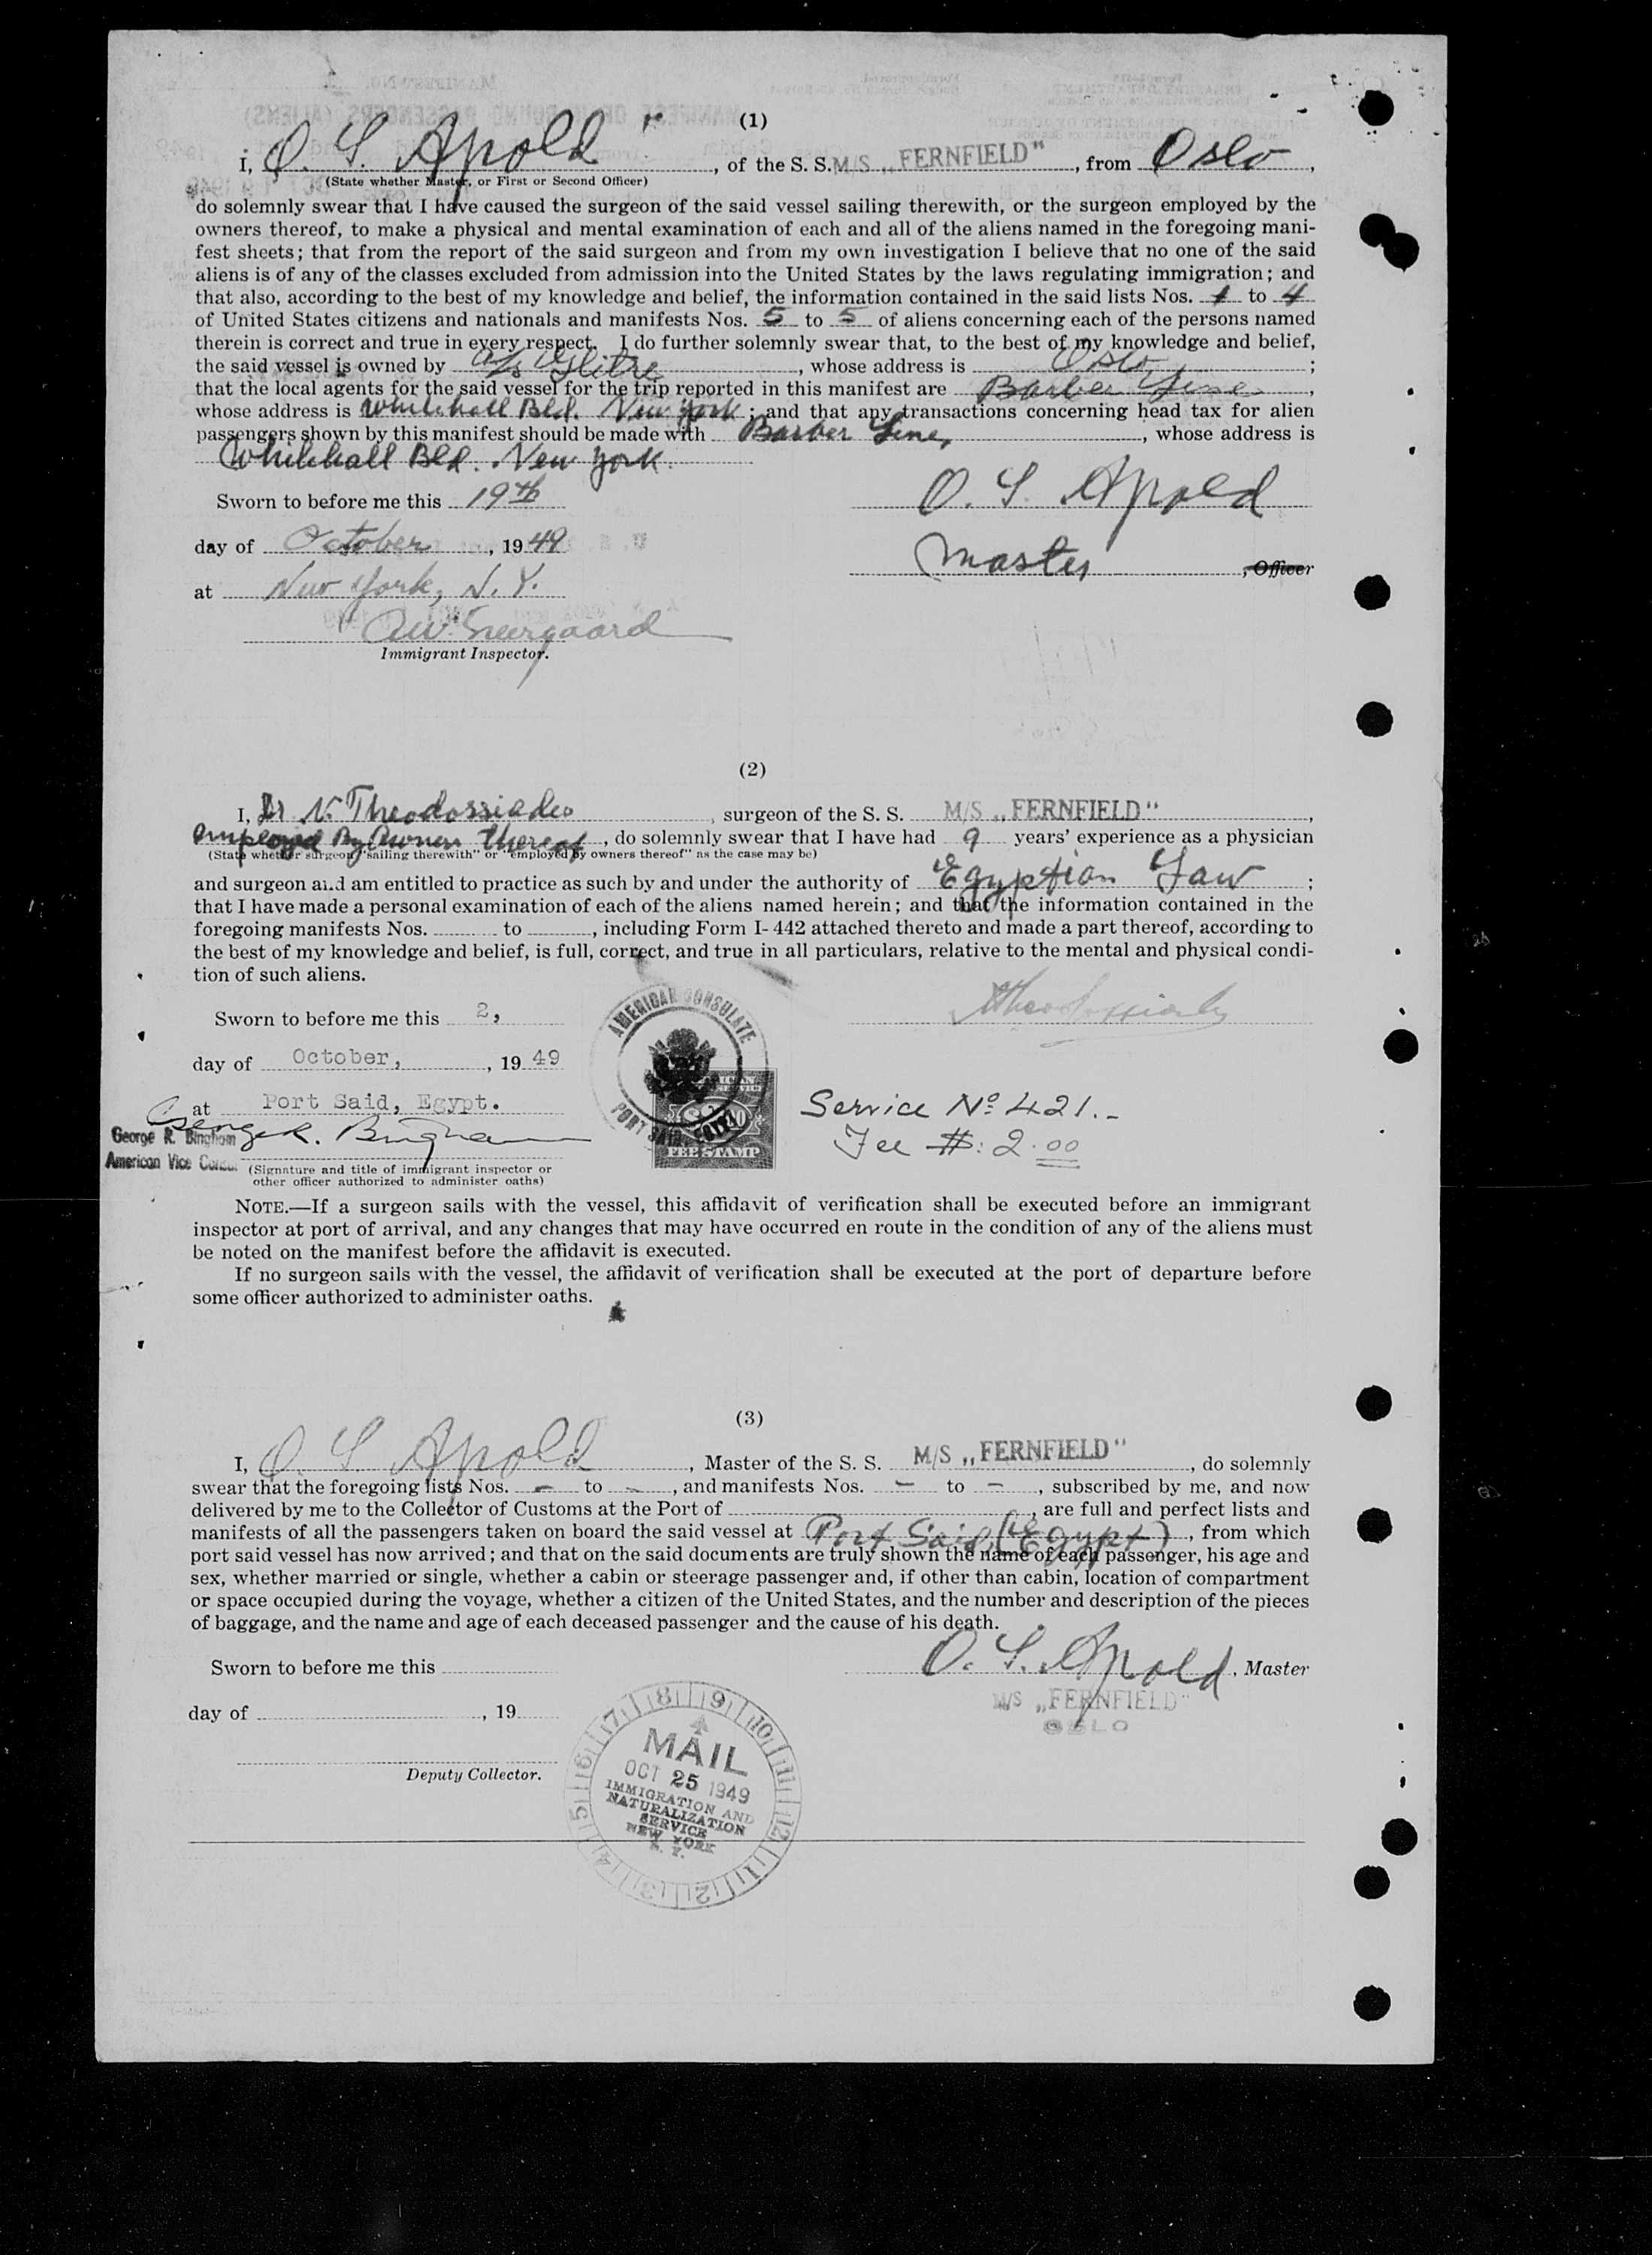 (1)
I, O. S. Apold, of the S. S. M/S „FERNFIELD", from Oslo,
(State whether Master, or First or Second Officer)
do solemnly swear that I have caused the surgeon of the said vessel sailing therewith, or the surgeon employed by the
owners thereof, to make a physical and mental examination of each and all of the aliens named in the foregoing mani-
fest sheets; that from the report of the said surgeon and from my own investigation I believe that no one of the said
aliens is of any of the classes excluded from admission into the United States by the laws regulating immigration; and
that also, according to the best of my knowledge and belief, the information contained in the said lists Nos. 1 to 4
of United States citizens and nationals and manifests Nos. 5 to 5 of aliens concerning each of the persons named
therein is correct and true in every respect. I do further solemnly swear that, to the best of my knowledge and belief,
the said vessel is owned by A/S Glitre, whose address is Oslo;
that the local agents for the said vessel for the trip reported in this manifest are Barber Line,
whose address is Whitehall Bld. New York; and that any transactions concerning head tax for alien
passengers shown by this manifest should be made with Barber Line, whose address is
Whitehall Bld. New York.
Sworn to before me this 19th
O. S. Apold
day of October, 1949
Master, Officer
at New York, N. Y.
Immigrant Inspector.
(2)
I, Dr N. Theodossiades, surgeon of the S. S. M/S „FERNFIELD",
employed By Owners thereof, do solemnly swear that I have had 9 years' experience as a physician
(State whether surgeon "sailing therewith" or "employed by owners thereof" as the case may be)
and surgeon and am entitled to practice as such by and under the authority of Egyptian Law;
that I have made a personal examination of each of the aliens named herein; and that the information contained in the
foregoing manifests Nos. to , including Form I-442 attached thereto and made a part thereof, according to
the best of my knowledge and belief, is full, correct, and true in all particulars, relative to the mental and physical condi-
tion of such aliens.
AMERICAN CONSULATE
PORT SAID, EGYPT
Sworn to before me this 2,
day of October, , 1949
at Port Said, Egypt.
FEE STAMP
Service № 421.-
Fee $: 2.00
George R. Bingham
George R. Bingham
American Vice Consul
(Signature and title of immigrant inspector or
other officer authorized to administer oaths)
NOTE.—If a surgeon sails with the vessel, this affidavit of verification shall be executed before an immigrant
inspector at port of arrival, and any changes that may have occurred en route in the condition of any of the aliens must
be noted on the manifest before the affidavit is executed.
If no surgeon sails with the vessel, the affidavit of verification shall be executed at the port of departure before
some officer authorized to administer oaths.
(3)
I, O. S. Apold, Master of the S. S. M/S „FERNFIELD", do solemnly
swear that the foregoing lists Nos. - to -, and manifests Nos. - to -, subscribed by me, and now
delivered by me to the Collector of Customs at the Port of , are full and perfect lists and
manifests of all the passengers taken on board the said vessel at Port Said, (Egypt), from which
port said vessel has now arrived; and that on the said documents are truly shown the name of each passenger, his age and
sex, whether married or single, whether a cabin or steerage passenger and, if other than cabin, location of compartment
or space occupied during the voyage, whether a citizen of the United States, and the number and description of the pieces
of baggage, and the name and age of each deceased passenger and the cause of his death.
Sworn to before me this
O. S. Apold, Master
M/S „FERNFIELD"
OSLO
day of , 19
Deputy Collector.
8 9 10 11 12 1 2 3 4 5 6 7
MAIL
OCT 25 1949
IMMIGRATION AND
NATURALIZATION
SERVICE
NEW YORK
N. Y.